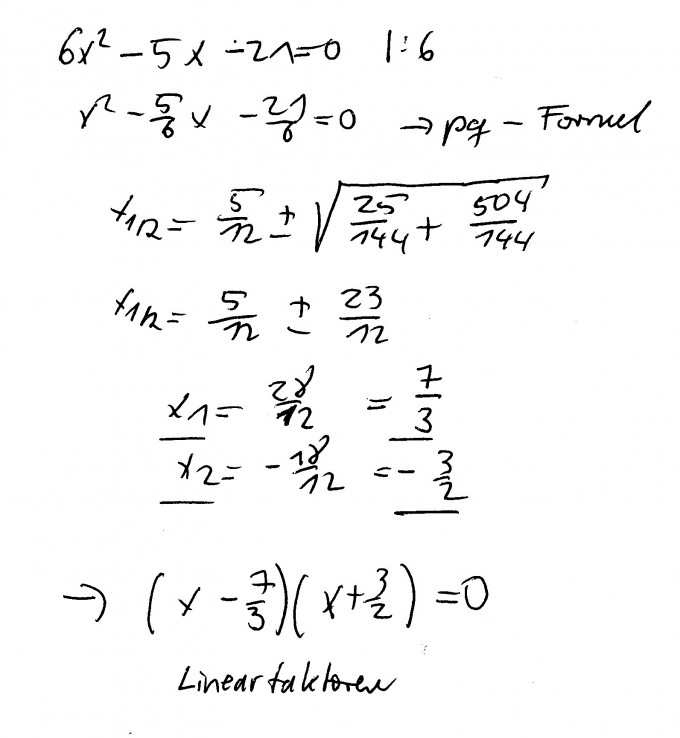 6x² - 5x - 21 = 0 | : 6
x² - 5/6 x - 21/6 = 0 → pq - Formel
x1/2 = 5/12 ± √(25/144 + 504/144)
x1/2 = 5/12 ± 23/12
x1 = 28/12 = 7/3
x2 = - 18/12 = - 3/2
→ (x - 7/3)(x + 3/2) = 0
Linearfaktoren